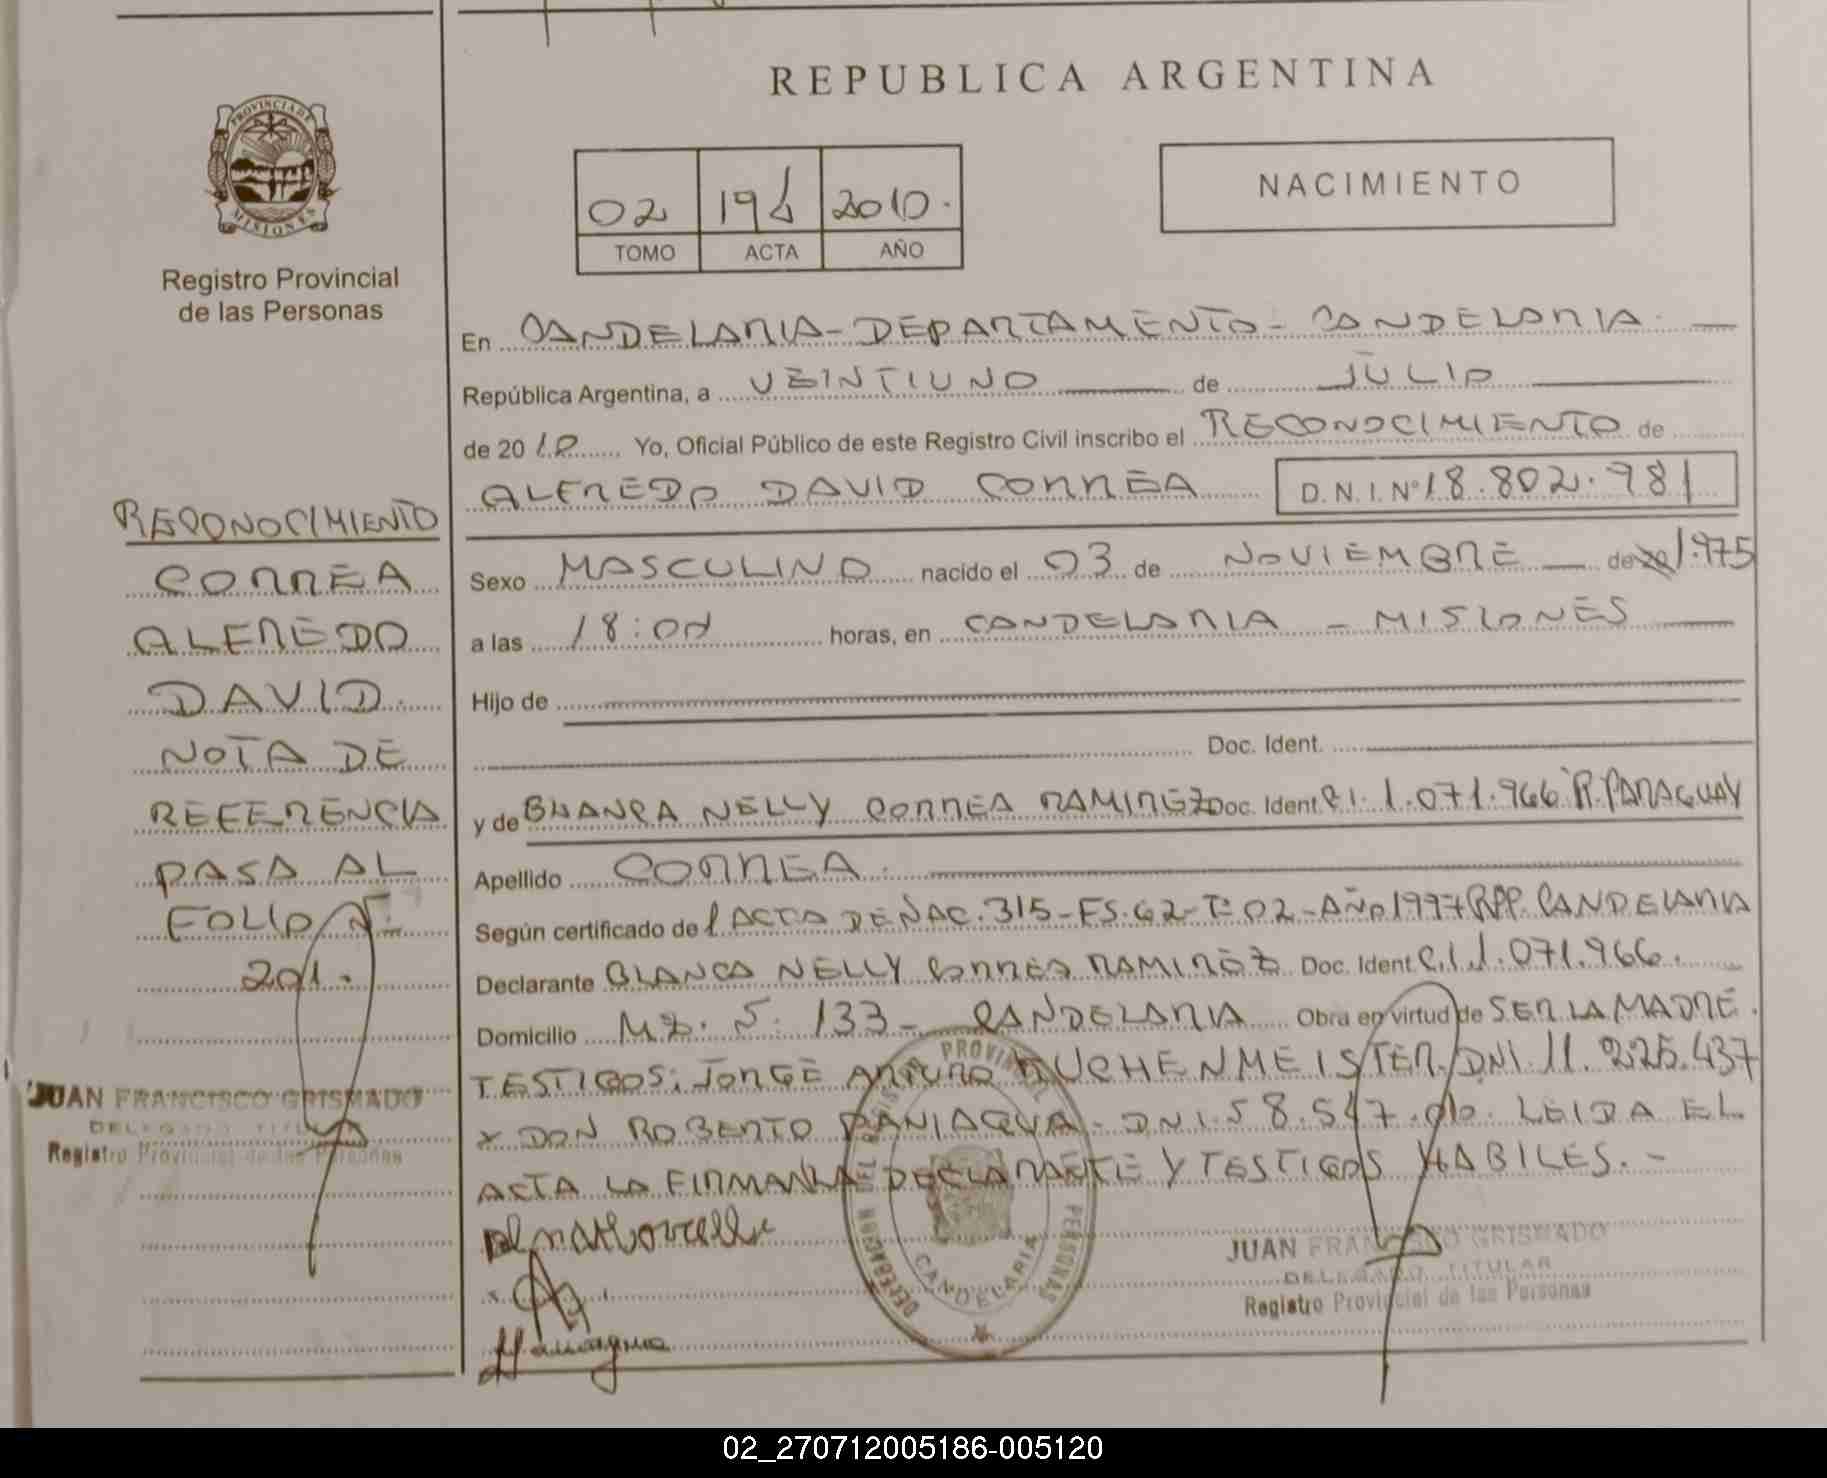 REPUBLICA ARGENTINA
PROVINCIA DE
MISIONES
Registro Provincial
de las Personas
02 2010.
TOMO ACTA AÑO
NACIMIENTO
En CANDELARIA - DEPARTAMENTO - CANDELARIA
República Argentina, a VEINTIUNO de JULIO
de 2010 Yo, Oficial Público de este Registro Civil inscribo el RECONOCIMIENTO de
ALFREDO DAVID CORREA D.N.I.Nº 18.802.981
Sexo MASCULINO nacido el 03 de NOVIEMBRE de 1.975
a las 18:00 horas, en CANDELARIA - MISIONES
Hijo de
Doc. Ident.
y de BLANCA NELLY CORREA RAMIREZ Doc. Ident C.I. 1.071.966 R. PARAGUAY
Apellido CORREA.
Según certificado de ACTA DE NAC. 315-FS.62-Tº 02-AÑO 1997 RPP. CANDELARIA
Declarante BLANCA NELLY CORREA RAMIREZ Doc. Ident C.I 1.071.966.
Domicilio MZ. 133- CANDELARIA Obra en virtud de SER LA MADRE.
TESTIGOS: JORGE ARTURO KUCHENMEISTER. DNI. 11.225.437
Y DON ROBERTO PANIAGUA- DNI. LEIDA EL
ACTA LA FIRMAN LA DECLARANTE Y TESTIGOS HABILES.-
RECONOCIMIENTO
CORREA
ALFREDO
DAVID.
NOTA DE
REFERENCIA
PASA AL
FOLIO Nº
201.
JUAN FRANCISCO GRISMADO
DELEGADO TITULAR
Registro Provincial de las Personas
DELEGACION DEL REGISTRO PROVINCIAL PERSONAS
CANDELARIA
JUAN FRANCISCO GRISMADO
DELEGADO TITULAR
Registro Provincial de las Personas
02_270712005186-005120